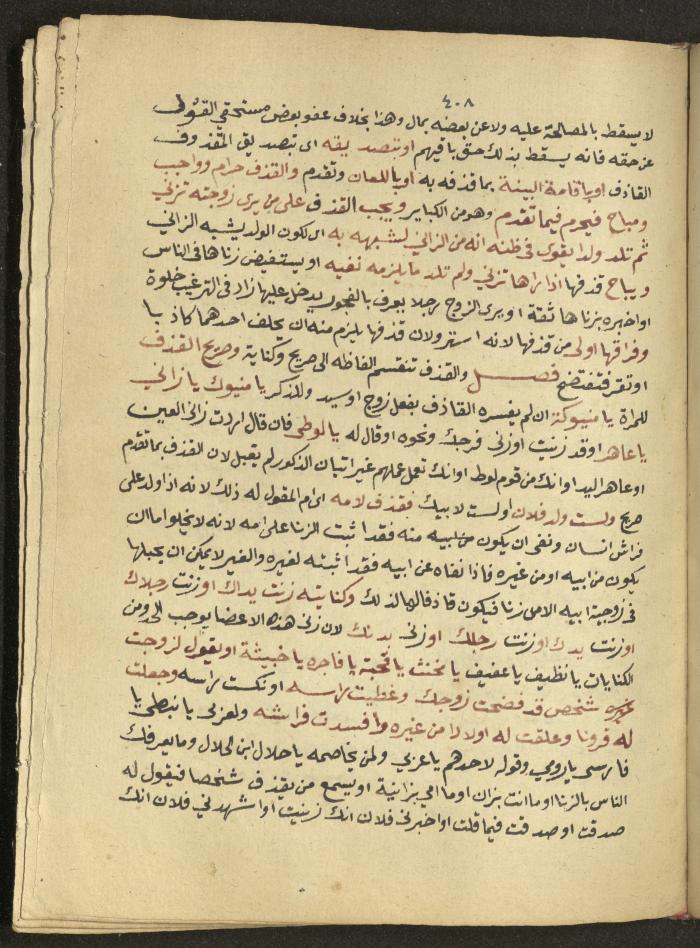 ٤٠٨
لا يسقط بالمصالحة عليه ولا عن بعضه بمال وهذا بخلاف عفو بعض مستحقي القود
عن حقه فانه يسقط بذلك حق باقيهم او بتصديقه اى بتصديق المقذوف
القاذف او باقامة البينة بما قذفه به او باللعان وتقدم والقذف حرام وواجب
ومباح فيحرم فيما تقدم وهو من الكباير ويجب القذف على من يرى زوجته تزني
ثم تلد ولدا يقوى في ظنه انه من الزاني لشبهه به اى لكون الولد يشبه الزاني
ويباح قذفها اذا راها تزني ولم تلد ما يلزمه نفيه او يستفيض زناها في الناس
او اخبره بزناها ثقة او يرى الزوج رجلا يعرف بالفجور يدخل عليها زاد في الترغيب خلوة
وفراقها اولى من قذفها لانه استر ولان قذفها يلزم منه ان يحلف احدهما كاذبا
او تقر فتفتضح فصل والقذف تنقسم الفاظه الى صريح وكناية وصريح القذف
للمراة يا منيوكة ان لم يفسره القاذف بفعل زوج او سيد وللذكر يا منيوك يا زاني
يا عاهر او قد زنيت او زنى فرجك ونحوه او قال له يا لوطي فان قال اردت زاني العين
او عاهر اليد او انك من قوم لوط او انك تعمل عملهم غير اتيان الذكور لم يقبل لان القذف بما تقدم
صريح ولست ولد فلان او لست لابيك فقذف لامه اى ام المقول له ذلك لانه اذا ولد على
فراش انسان ونفى ان يكون من ابيه منه فقد اثبت الزنا على امه لانه لا يخلوا اما ان
يكون من ابيه او من غيره فاذا نفاه عن ابيه فقد اثبته لغيره والغير لا يمكن ان يحبلها
في زوجية ابيه الا من زنا فيكون قاذفا لها لذلك وكنايته زنت يداك او زنت رجلاك
او زنت يدك او زنت رجلك او زنى بدنك لان زنى هذه الاعضا يوجب الحد ومن
الكنايات يا نظيف يا عفيف يا مخنث يا قحبة يا فاجره يا خبيثة او يقول لزوجت
غيره شخص قد فضحت زوجك وغطيت راسه او نكست راسه وجعلت
له قرونا وعلقت له اولادا من غيره وافسدت فراشه ولعربي يا نبطي يا
فارسي يا رومي وقوله لاحدهم يا عربي ولمن يخاصمه يا حلال ابن الحلال وما يعرفك
الناس بالزنا او ما انت بزان او ما امي بزانية او يسمع من يقذف شخصا فيقول له
صدقت او صدقت فيما قلت او اخبرني فلان انك زنيت او اشهدني فلان انك